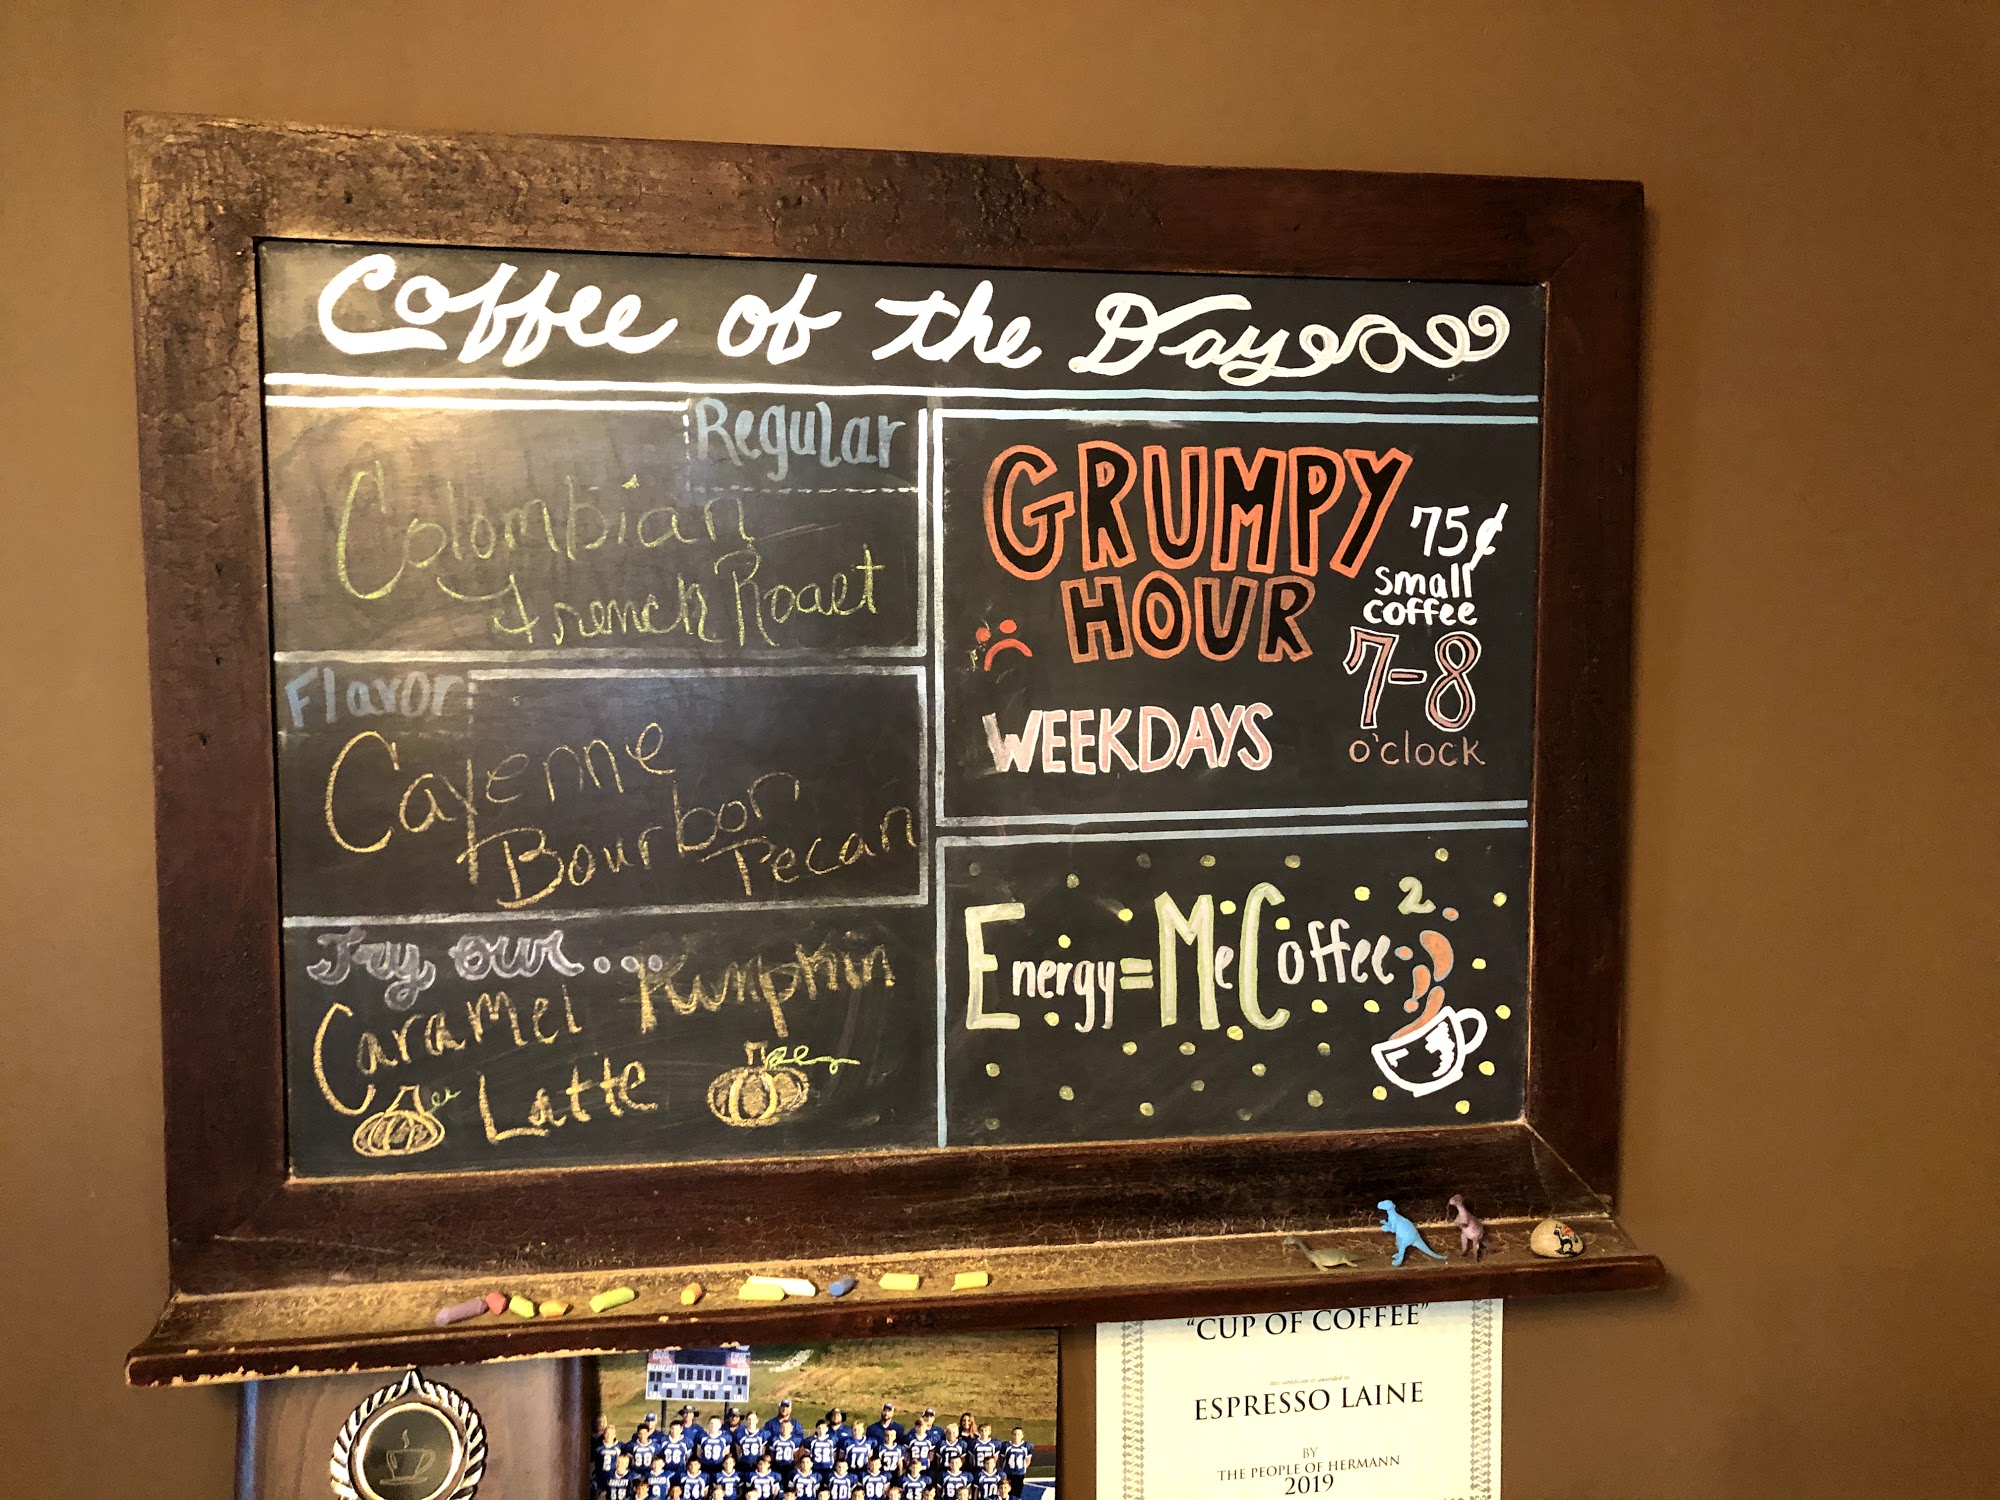 Coffee of the Day
Regular
Colombian
French Roast
Flavor
Cayenne
Bourbon
Pecan
Try our...
Caramel Pumpkin
Latte
GRUMPY
HOUR
75¢
small
coffee
7-8
o'clock
WEEKDAYS
Energy=MeCoffee²
"CUP OF COFFEE"
this certificate is awarded to
ESPRESSO LAINE
BY
THE PEOPLE OF HERMANN
2019